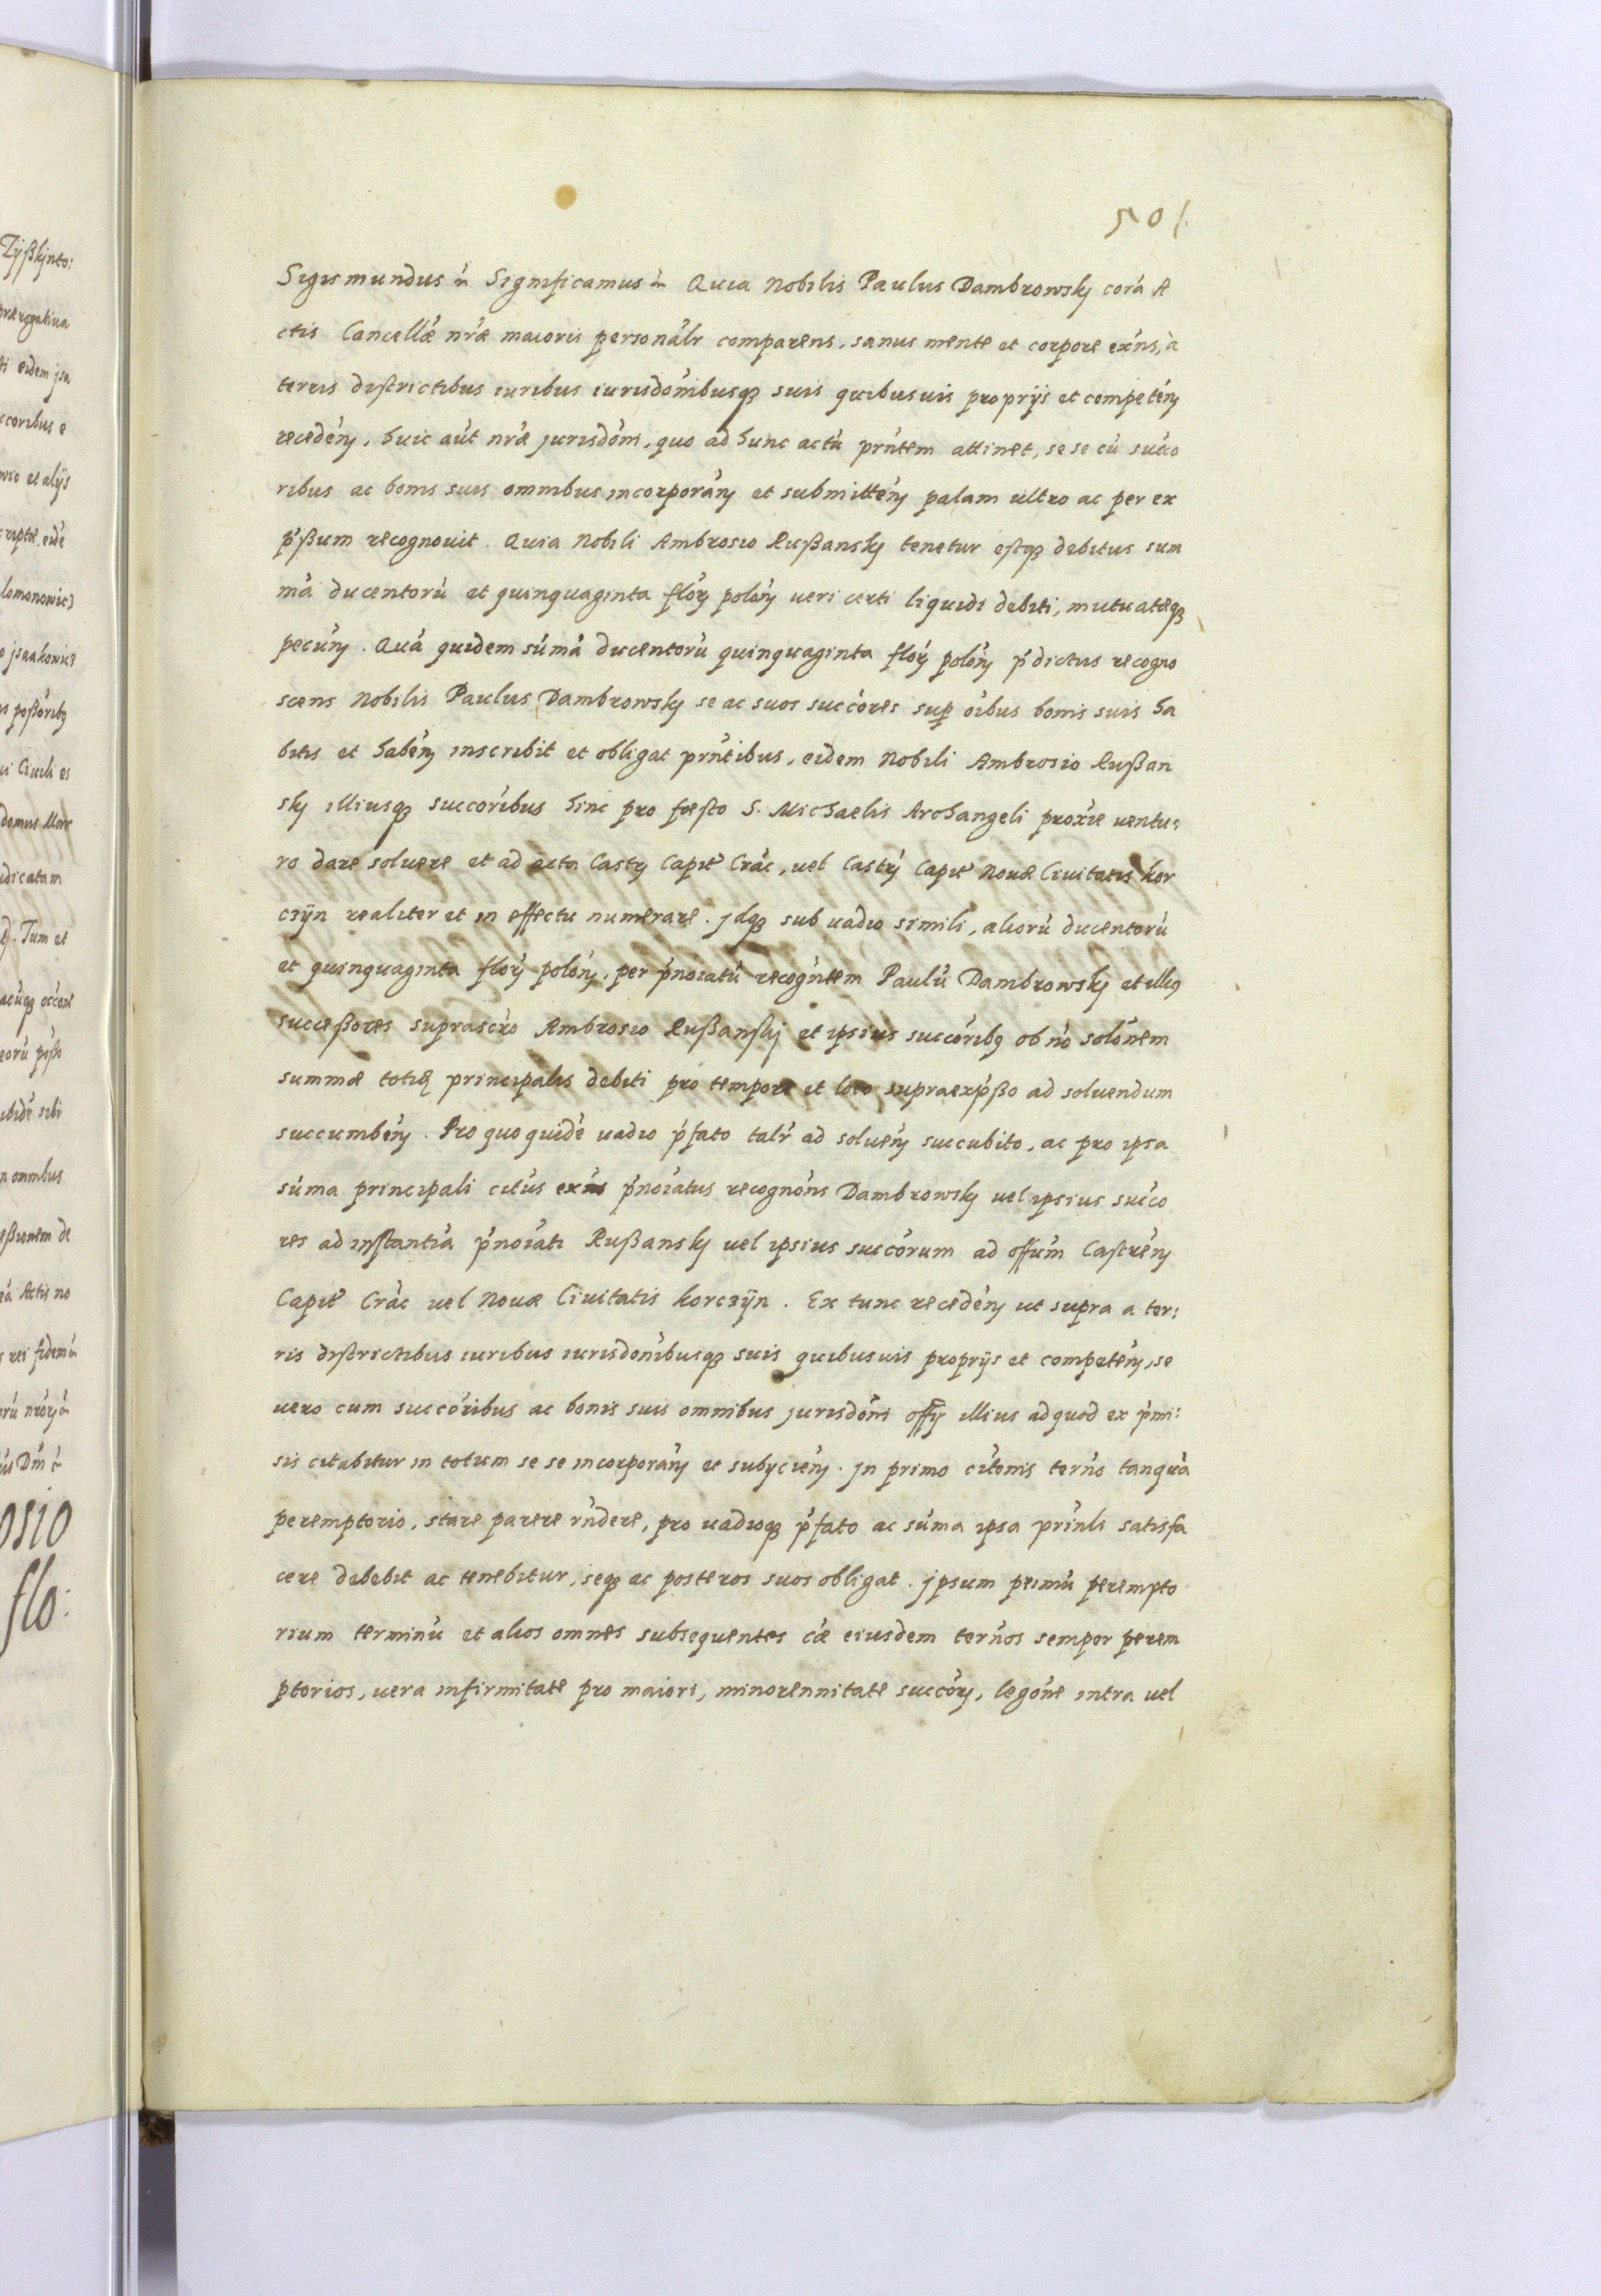 501.
Sigismundus &c Significamus &c Quia Nobilis Paulus Dambrowskj corā A
ctis Cancellæ nræ maioris personalr comparens, sanus mente et corpore exns, à
terris districtibus iuribus iurisdonibusq suis quibusuis proprijs et competen
receden, huic aut nræ jurisdoni, quo ad hunc actū prntem attinet, se se cū succo
ribus ac bonis suis omnibus incorporan et submitten palam ultro ac per ex
pßum recognouit. Quia Nobili Ambrosio Rußanskj tenetur estq debitus sum
mā ducentorū et quinquaginta flor polon ueri certi liquidi debiti, mutuatæq
pecun. Quā quidem sūmā ducentorū quinquaginta flor polon pdictus recogno
scens Nobilis Paulus Dambrowskj se ac suos succores sup oibus bonis suis ha
bitis et haben inscribit et obligat prntibus, eidem Nobili Ambrosio Rußan
skj illiusq succoribus hinc pro fæsto S. Michaelis Archangeli proxie uentu:
ro dare soluere et ad acta Castr Capit Crac, uel Castr Capit Nouæ Ciuitatis Kor
czÿn realiter et in effectu numerare. jdq sub uadio simili, aliorū ducentorū
et quinquaginta flor polon, per pnoiatū recogntem Paulū Dambrowskj et illius
succeßores suprascro Ambrosio Rußanskj et ipsius succoribq ob no solonem
summæ totiq principalis debiti pro tempore et loco supraexpßo ad soluendum
succumben. Pro quo quidē uadio pfato talr ad soluen succubito, ac pro ipsa
sūma principali citus exns pnoiatus recognons Dambrowskj uel ipsius succo
res ad instantiā pnoiati Rußanskj uel ipsius succorum ad offum Castren
Capit Crac uel Nouæ Ciuitatis Korczÿn. Ex tunc receden ut supra a ter:
ris districtibus iuribus iurisdonibusq suis quibusuis proprijs et competen, se
uero cum succoribus ac bonis suis omnibus jurisdoni offij illius ad quod ex pmi:
sis citabitur in totum se se incorporan et subijcien. Jn primo citonis terno tanquā
peremptorio, stare parere rndere, pro uadioq pfato ac sūma ipsa prinli satisfa
cere debebit ac tenebitur, seq ac posteros suos obligat. Jpsum primū perempto
rium terminū et alios omnes subsequentes cæ eiusdem ternos semper perem
ptorios, uera infirmitate pro maiori, minorennitate succor, legone intra uel